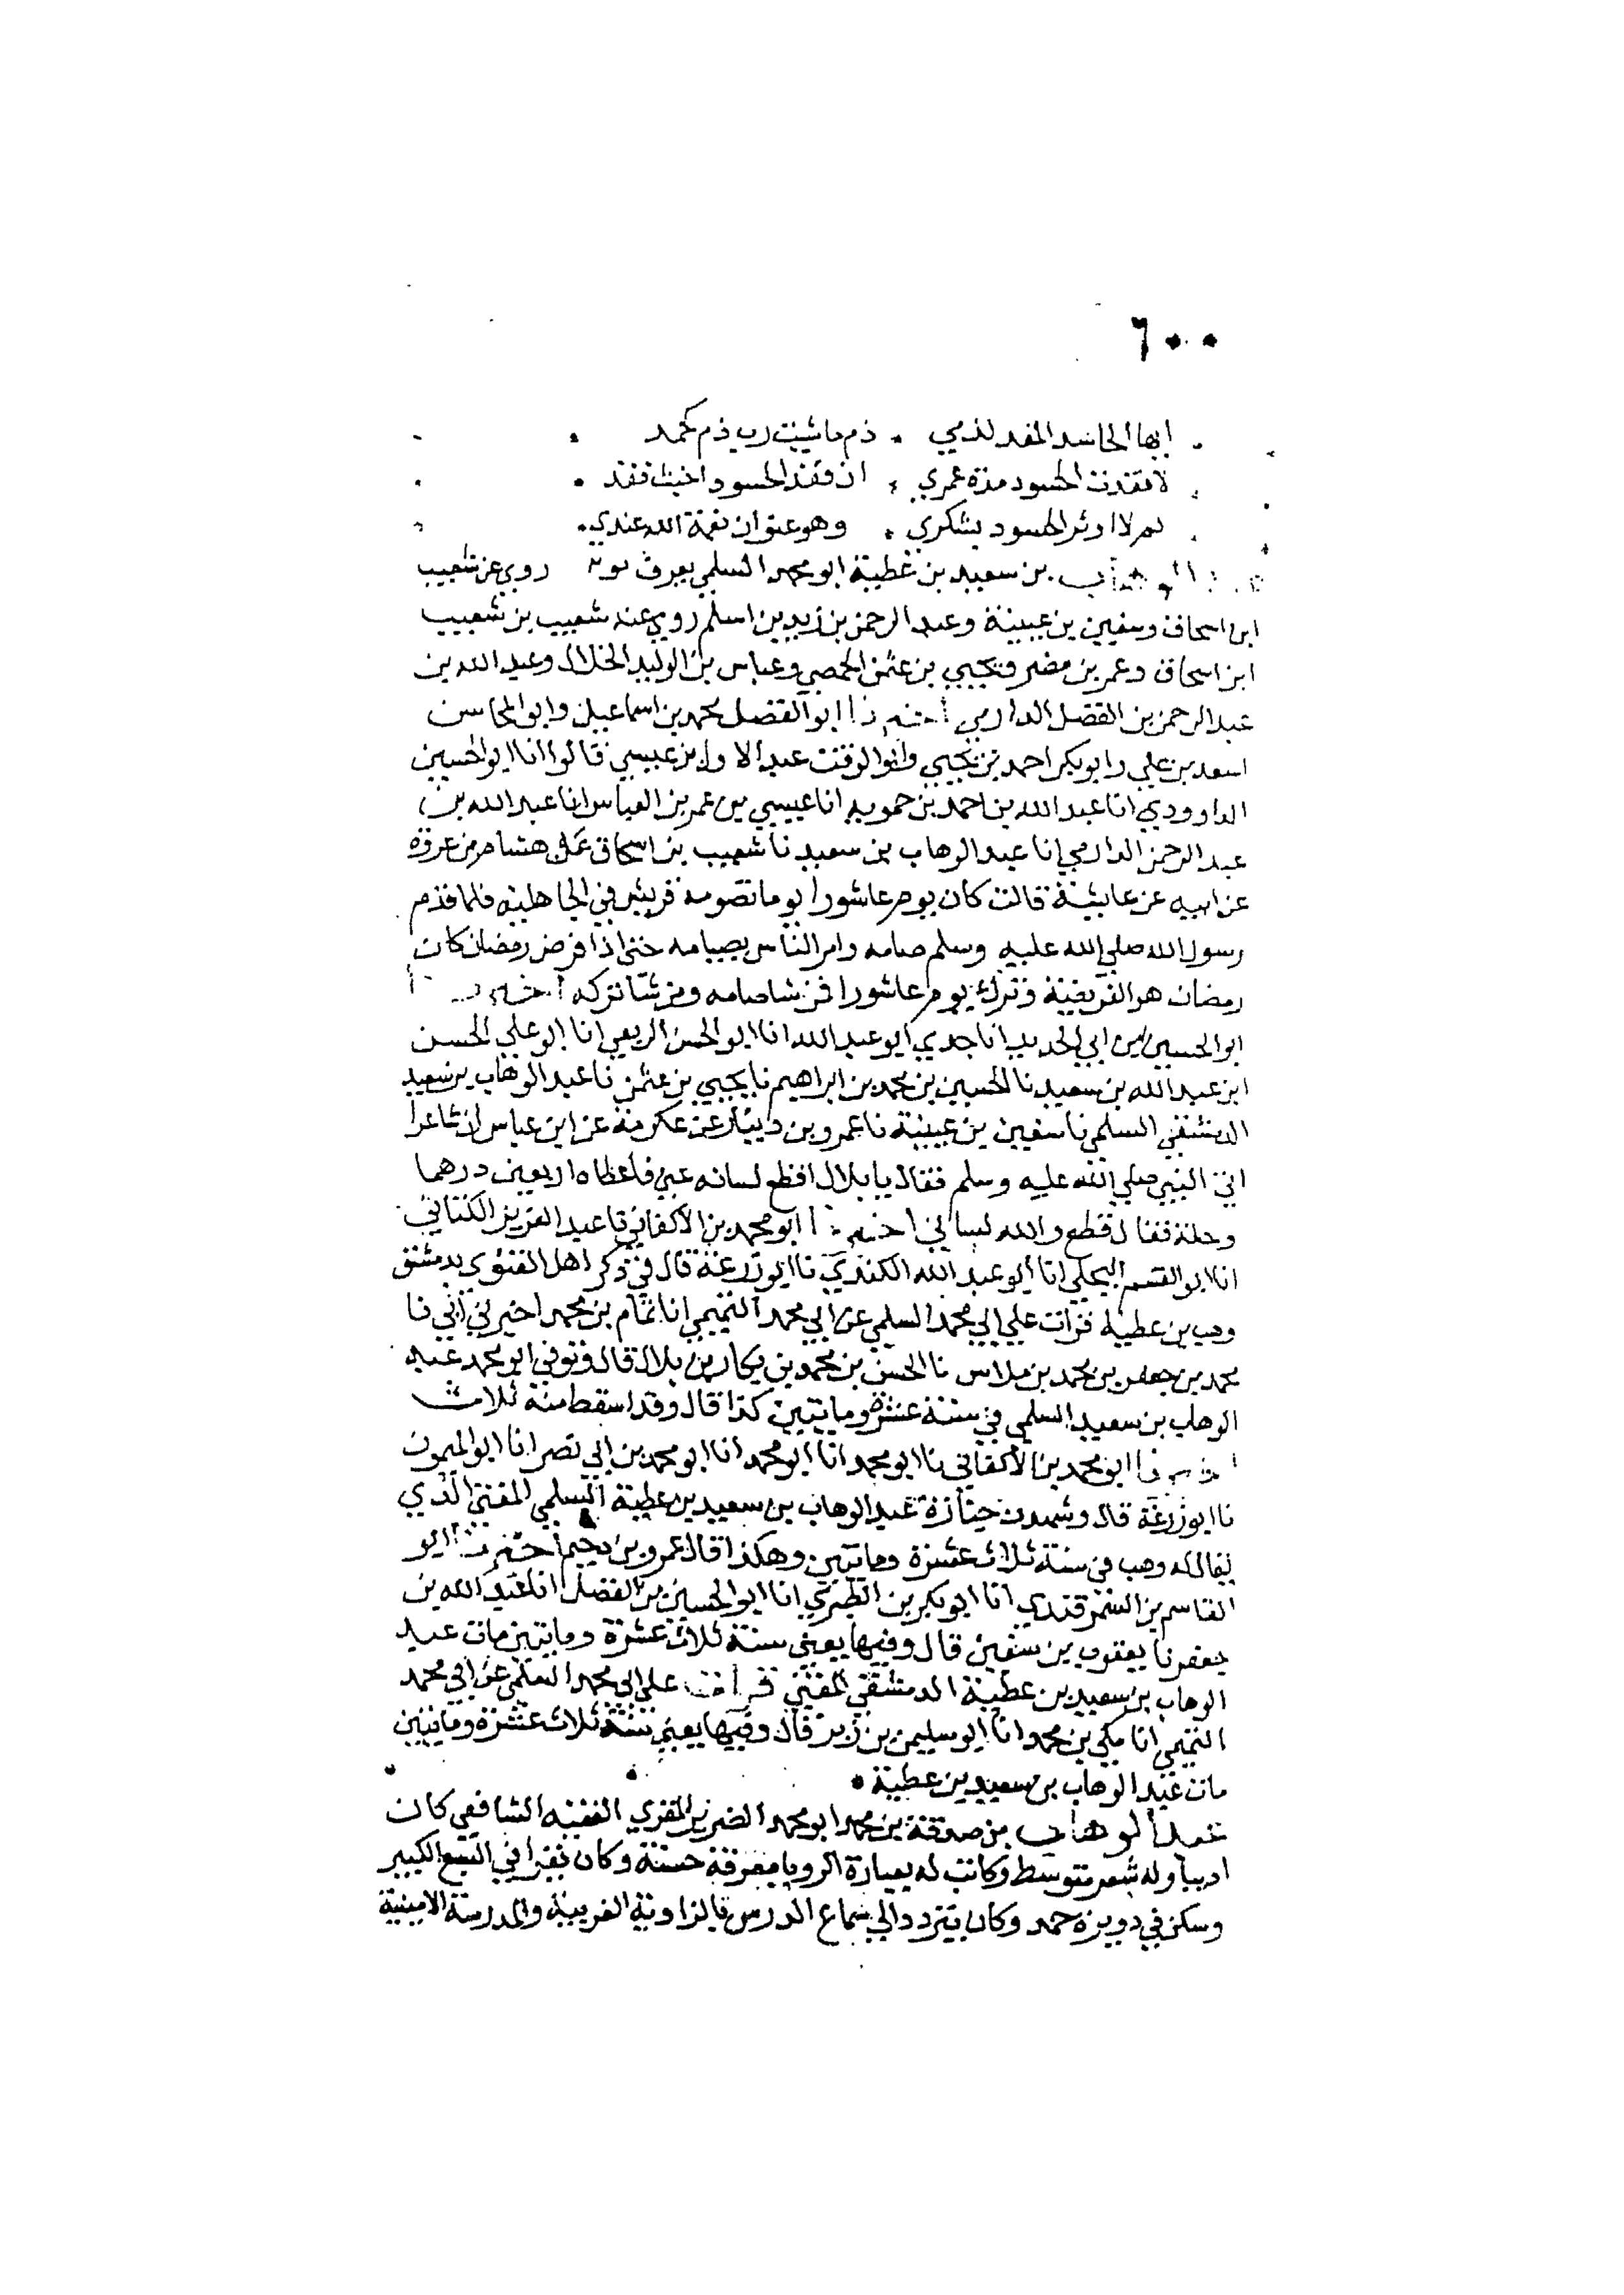 ٦٠٠
ايها الحاسد المعد لذمي ذم ماشيت رب ذم كحمد
لا فقدت الحسود مدة عمري ان فقد الحسود اخبث فقد
لم لا اوثر الحسود بشكري وهو عنوان نعمة الله عندي
بن سعيد بن عطية ابو محمد السلمي يعرف روي عن شعيب
ابن اسحاق وسفين بن عيينة وعبد الرحمن بن زيد بن اسلم روي عنه شعيب بن شعيب
ابن اسحاق وعمر بن مضر ويحيي بن عثمن الحمصي وعباس بن الوليد الخلال وعبد الله بن
عبد الرحمن بن الفضل الدارمي اخبرنا ابو الفضل محمد بن اسماعيل وابو المحاسن
اسعد بن علي وابو بكر احمد بن يحيي وابو الوقت عبد الاول بن عيسي قالوا انا ابو الحسين
الداوودي انا عبد الله بن احمد بن حمويه انا عيسي بن عمر بن العباس انا عبد الله بن
عبد الرحمن الدارمي انا عبد الوهاب بن سعيد نا شعيب بن اسحاق عن هشام بن عروة
عن ابيه عن عايشة قالت كان يوم عاشورا يوما تصومه قريش في الجاهلية فلما قدم
رسول الله صلي الله عليه وسلم صامه وامر الناس بصيامه حتى اذا فرض رمضان كان
رمضان هو الفريضة وترك يوم عاشورا فمن شا صامه ومن شا تركه اخبرنا
ابو الحسين بن ابي الحديد انا جدي ابو عبد الله انا ابو الحسن الربعي انا ابو علي الحسن
ابن عبد الله بن سعيد نا الحسين بن محمد بن ابراهيم نا يحيي بن عثمن نا عبد الوهاب بن سعيد
الدمشقي السلمي نا سفين بن عيينة نا عمرو بن دينار عن عكرمة عن ابن عباس ان شاعرا
اتى النبي صلي الله عليه وسلم فقال يا بلال اقطع لسانه عني فاعطاه اربعين درهما
وحلة فقال قطع والله لساني اخبرنا ابو محمد بن الاكفاني نا عبد العزيز الكتاني
انا ابو القسم البجلي انا ابو عبد الله الكندي نا ابو زرعة قال في ذكر اهل الفتوى بدمشق
وهب بن عطية قرات علي ابي محمد السلمي عن ابي محمد التميمي انا تمام بن محمد اخبرني ابي نا
محمد بن جعفر بن محمد بن ملاس نا الحسن بن محمد بن بكار بن بلال قال وتوفي ابو محمد عبد
الوهاب بن سعيد السلمي في سنة عشرة ومايتين كذا قال وقد اسقط منه ثلاث
اخبرنا ابو محمد بن الاكفاني نا ابو محمد انا ابو محمد انا ابو محمد بن ابي نصر انا ابو الميمون
نا ابو زرعة قال وشهدت جنازة عبد الوهاب بن سعيد بن عطية السلمي المفتي الذي
يقال له وهب في سنة ثلاث عشرة ومايتين وهكذا قال عمرو بن دحيم اخبرنا ابو
القاسم بن السمرقندي انا ابو بكر بن الطبري انا ابو الحسين بن الفضل انا عبد الله بن
جعفر نا يعقوب بن سفين قال وفيها يعني سنة ثلاث عشرة ومايتين مات عبد
الوهاب بن سعيد بن عطية الدمشقي المفتي قرات علي ابي محمد السلمي عن ابي محمد
التميمي انا مكي بن محمد انا ابو سليمن بن زبر قال وفيها يعني سنة ثلاث عشرة ومايتين
مات عبد الوهاب بن سعيد بن عطية
عبد الوهاب بن صدقة بن محمد ابو محمد الضرير المقري الفقيه الشافعي كان
اديبا وله شعر متوسط وكانت له بعبارة الرويا معرفة حسنة وكان يقرا في السبع الكبير
وسكن في دويرة حمد وكان يتردد الي سماع الدرس بالزاوية الغربية والمدرسة الامينية